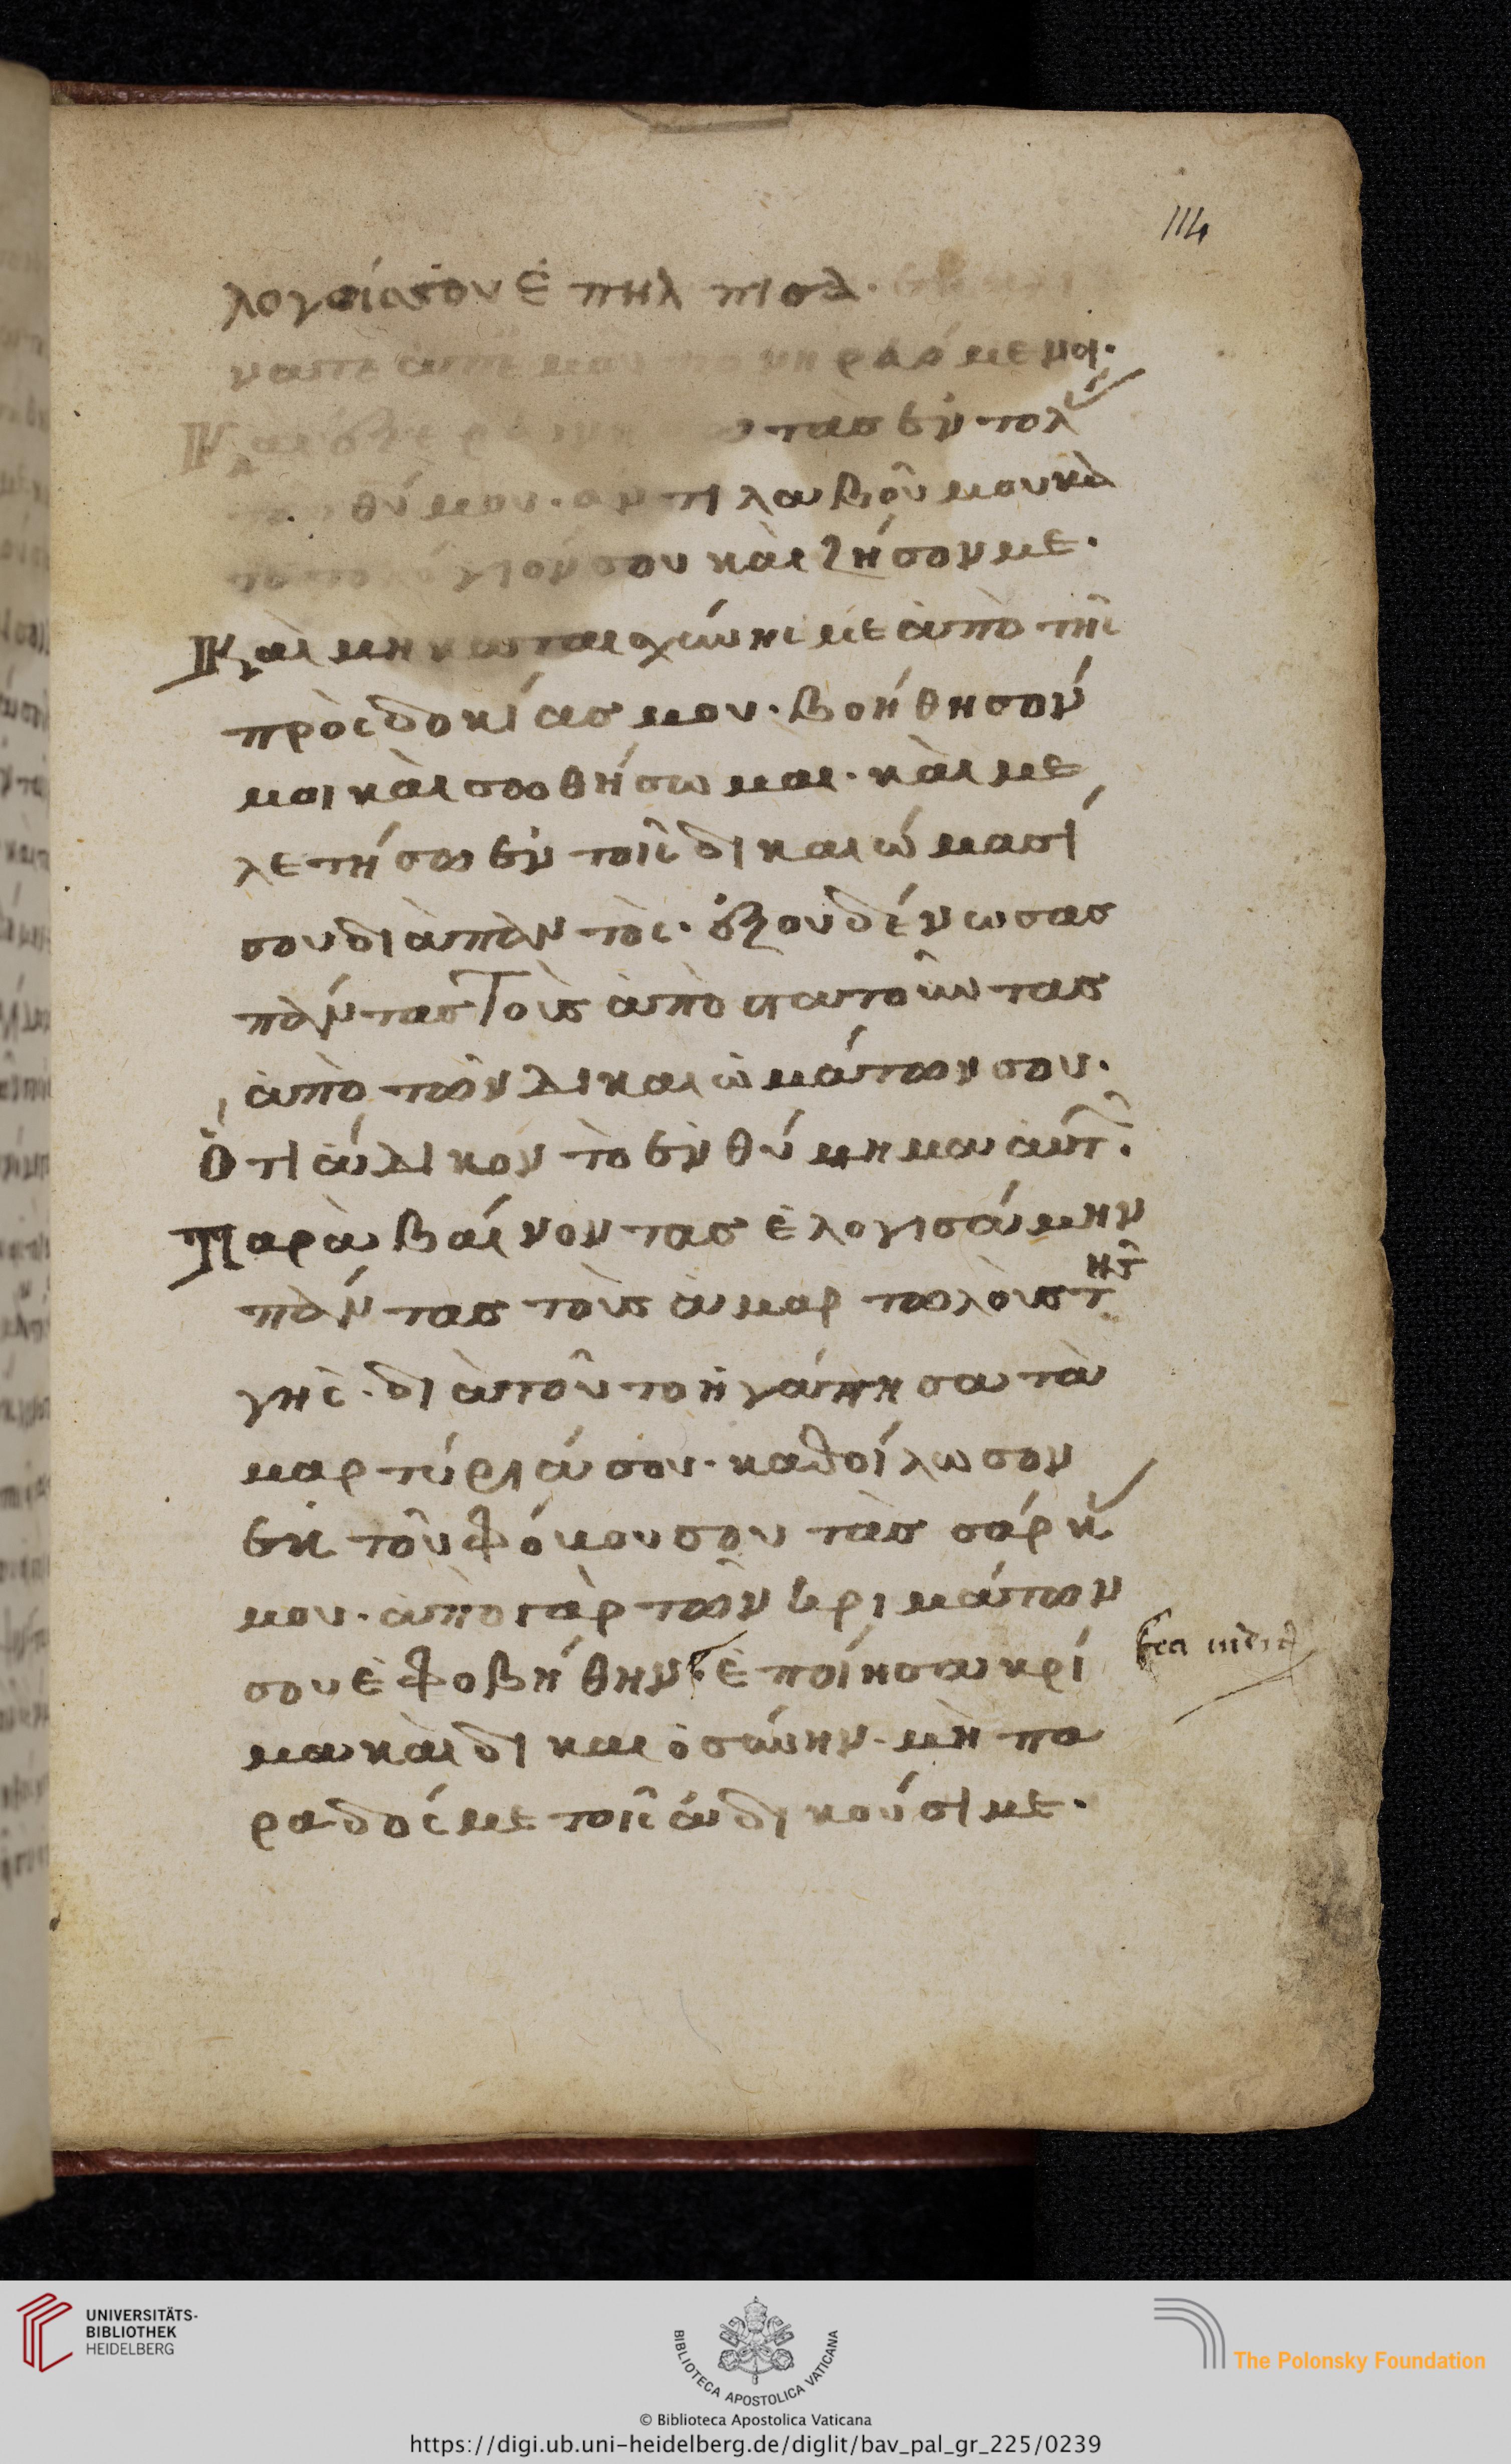 114
λογϊάσου ἐπηλπισα. ἐκκλί
νατε ἀπἐμου πονηρευόμενοι.
Καὶ ἐξερευνήσω τὰσ ἐντολ
τοῦ θύ μου. ἀντιλαβοῦ μου κὰ
τατολόγιόν σου καὶ ζήσον με.
Καὶ μη καταισχύνης με ἀπὸ τῆς
πρὸς δοκίασ μου. βοήθησόν
μοι καὶ σωθήσωμαι. καὶ με
λετήσω ἐν τοῖς δικαιώμασί
σου διὰπὰν τὸς. ἐξουδένωσασ
πάντασ Τοὺσ ἀπὸστατοῦντασ
ἀπὸ τῶν δικαιωμάτων σου.
Ὅτι ἄδικον τὸ ἐνθύμημα αὐτ.
Παρὰβαίνοντασ ἐλογισάμην
πάντασ τοὺσ ἁμαρτωλοὺσ τῆς
γῆς. διὰτοῦτο ἠγάπησα τὰ
μαρτύριά σου. καθοίλωσον
ἐκ τοῦ φόβου σου τὰσ σάρκ
μου. ἀπὸ γὰρ τῶν κριμάτων
σου ἐφοβήθην. ἐποίησα κρί
μα καὶ δικαιοσύνην. μὴ πα
ραδός με τοῖς ἀδικούσί με.
UNIVERSITÄTS-
BIBLIOTHEK
HEIDELBERG
BIBLIOTECA APOSTOLICA VATICANA
The Polonsky Foundation
© Biblioteca Apostolica Vaticana
https://digi.ub.uni-heidelberg.de/diglit/bav_pal_gr_225/0239